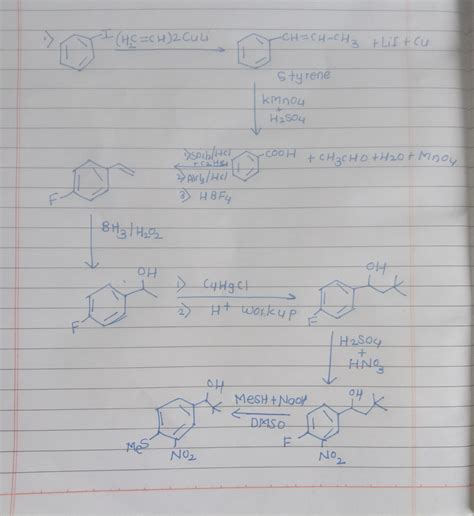 1) I (H2C=CH)2CuLi CH=CH-CH3 + LiI + Cu
Styrene
KMnO4
+
H2SO4
COOH + CH3CHO + H2O + MnO4
2) /HCl
3) HBF4
F
BH3/H2O2
OH 1) C4HgCl OH
2) H+ workup
F F
H2SO4
+
HNO3
OH MeSH + NaOH OH
DMSO
MeS F
NO2 NO2